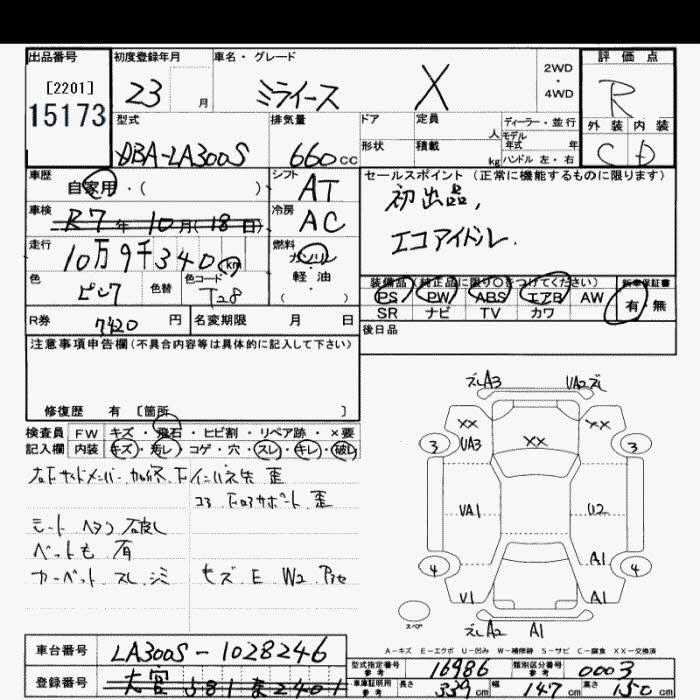 出品番号 初度登録年月 車名・グレード 2WD・4WD 評価点
[2201] 15173 23 月 ミライース X R
型式 排気量 ドア 定員 人 ディーラー・並行 外装 内装
DBA-LA300S 660 cc 形状 積載 kg モデル年式 年 ハンドル 左・右 C D
車歴 自家用・( ) シフト AT セールスポイント (正常に機能するものに限ります)
車検 R7年10月(18日) 冷房 AC 初出品,
走行 10万9千340 km 燃料 ガソリン・軽油・( ) エコアイドル.
色 ピンク 色替 色コード T28 装備品(純正品に限り○をつけてください) 新車保証書
PS PW ABS エアB AW 有・無
SR ナビ TV カワ
R券 7420 円 名変期限 月 日 後日品
注意事項申告欄(不具合内容等は具体的に記入して下さい)
修復歴 有 [箇所 ]
検査員 FW キズ・飛石・ヒビ割・リペア跡・×要
記入欄 内装 キズ・汚レ・コゲ・穴・スレ・キレ・破レ
コアサポート 歪
シート
ペットも 有
カーペット スレ シミ キズ E W2
ズレA3 UA2ズレ
XX XX XX
3 UA3 3
UA1 U2
A1
4 4
V1 A1
スペア ズレA2 A1
A-キズ E-エクボ U-凹み W-補修跡 S-サビ C-腐食 XX-交換済
車台番号 LA300S-1028246
登録番号 大宮 581 2401
型式指定番号 参考 16986 類別区分番号 参考 0003
車庫証明用 参考 長さ 339 cm 幅 147 cm 高さ 150 cm